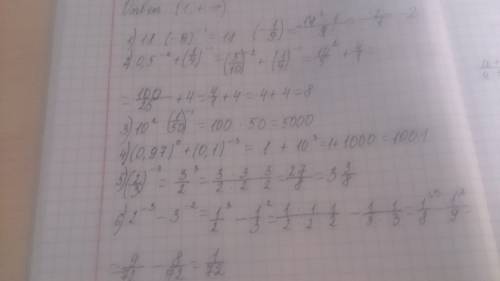 Ответ (1; +∞)
1) 18 · (-9)⁻¹ = 18 · (-1/9) = -18/9 = -2
2) 0,5⁻² + (1/4)⁻¹ = (5/10)⁻² + (1/4)⁻¹ =
= 100/25 + 4 = 4 + 4 = 8
3) 10² · (1/50)⁻¹ = 100 · 50 = 5000
4) (0,97)⁰ + (0,1)⁻³ = 1 + 10³ = 1 + 1000 = 1001
5) (2/3)⁻³ = 3³/2 = 3/2 · 3/2 · 3/2 = 27/8 = 3 3/8
6) 2⁻³ - 3⁻² = 1³/2 - 1²/3 = 1/2 · 1/2 · 1/2 - 1/3 · 1/3 = 1/8 - 1/9 =
= 9/72 - 8/72 = 1/72